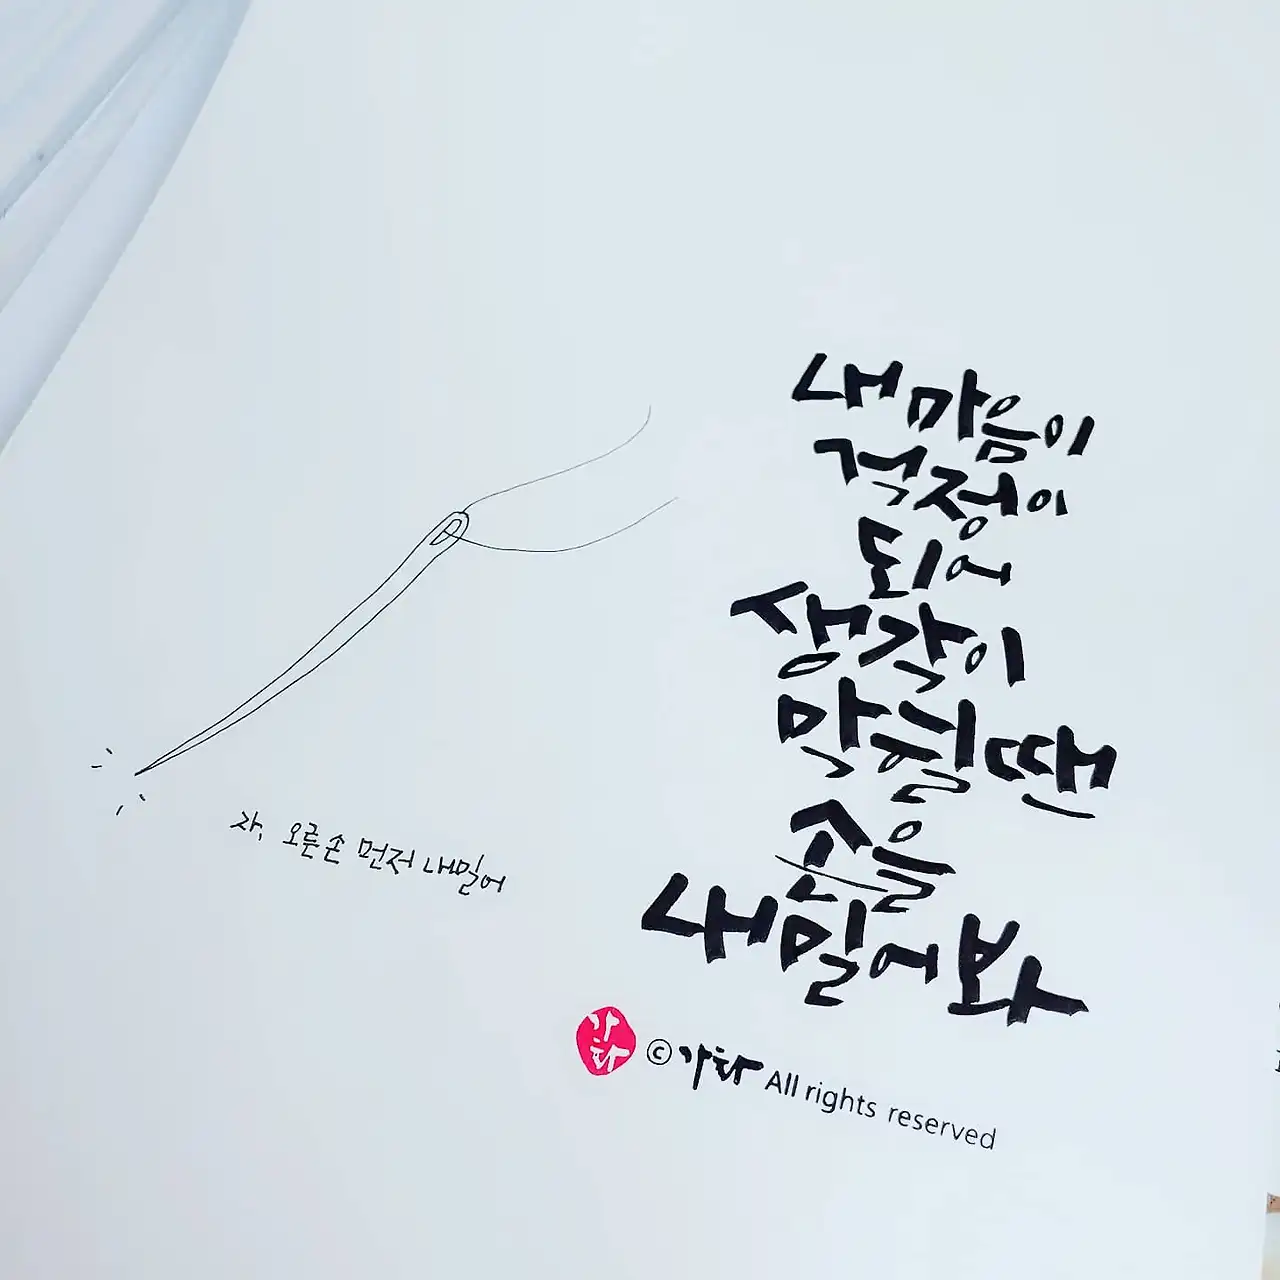 내 마음이
걱정이
되어
생각이
막힐 땐
손을
내밀어 봐
자, 오른손 먼저 내밀어
가화
© 가화 All rights reserved